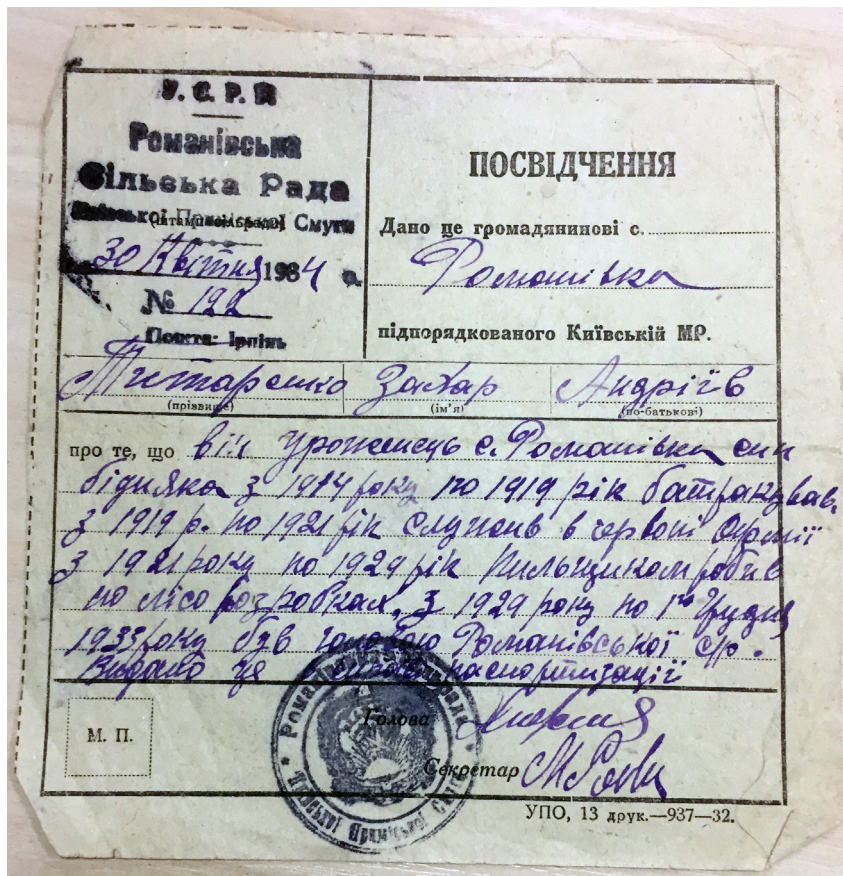 У. С. Р. Р.
Романівська
Сільська Рада
Київської Приміської Смути
(штамп сільради)
30 Квітня 1934 р.
№ 122
Пошта: Ірпінь
ПОСВІДЧЕННЯ
Дано це громадянинові с.
Романівка
підпорядкованого Київській МР.
Титаренко Захар Андріїв
(прізвище) (ім'я) (по-батькові)
про те, що він уроженець с. Романівка син
бідняка з 1914 року по 1919 рік батракував
з 1919 р. по 1921 рік служив в червоні Армії
з 1921 року по 1929 рік пильщиком робив
по лісо розробках, з 1929 року по 1го Грудня
1933 року був головою Романівської с/р.
Видано це паспортизації
Голова
М. П.
Секретар
Романівська сільрада
Київської Приміської Смуги
УПО, 13 друк.—937—32.